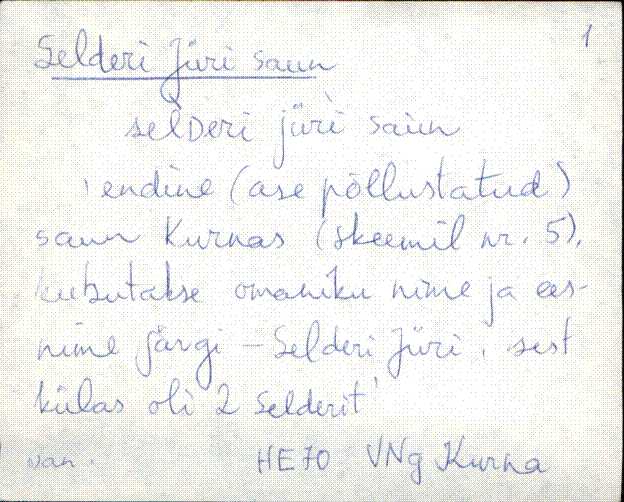 1
Selderi Jüri saun
sel̀Deri jüri saun
'endine (ase põllustatud)
saun Kurnas (skeemil nr. 5),
kutsutakse omaniku nime ja ees-
nime järgi – Selderi Jüri, sest
külas oli 2 Selderit'
van. HE70 VNg Kurna